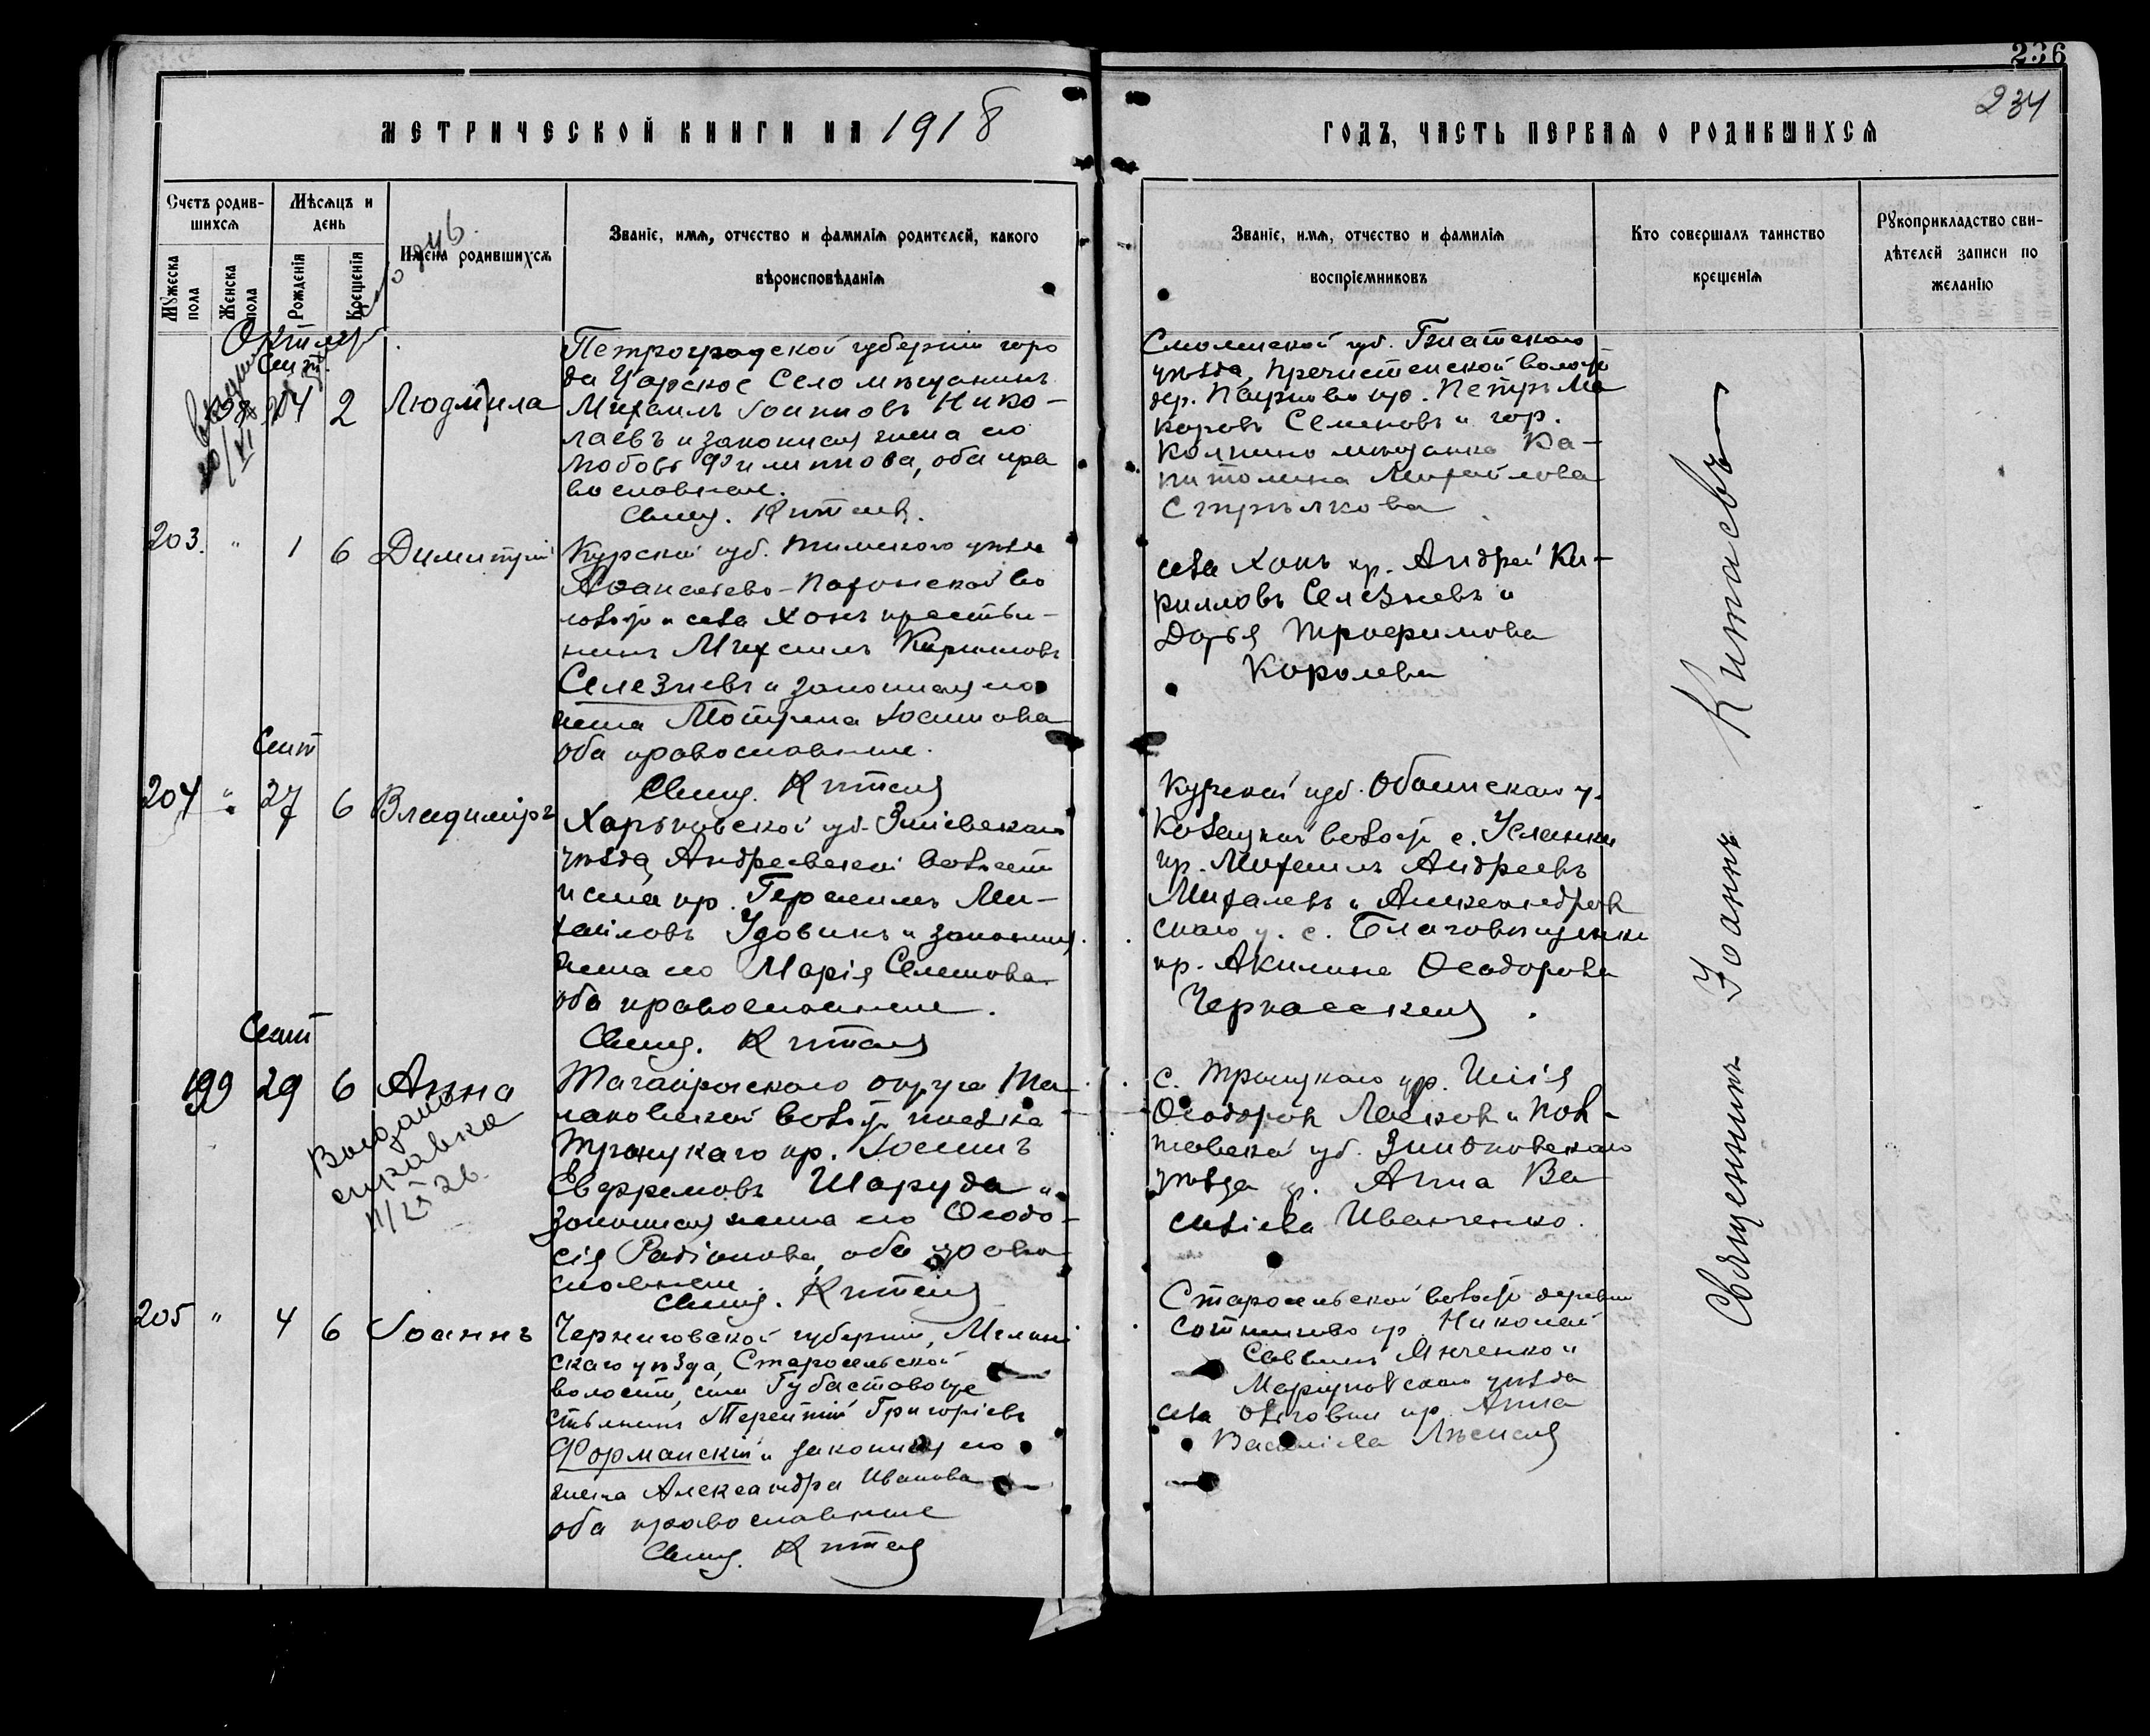 236
234
МЕТРИЧЕСКОЙ КНИГИ НА 1918
ГОДЪ, ЧАСТЬ ПЕРВАЯ О РОДИВШИХСЯ
Счетъ родив-
шихся
Мужеска пола
Женска пола
Мѣсяцъ и
день
Рожденія
Крещенія
Имена родившихся
Званіе, имя, отчество и фамилія родителей, какого
вѣроисповѣданія
Званіе, имя, отчество и фамилія
воспріемниковъ
Кто совершалъ таинство
крещенія
Рукоприкладство сви-
дѣтелей записи по
желанію
Октябрь
Сент.
198 24 2 Людмила
Петроградской губерніи горо
да Царское Село мѣщанинъ
Михаилъ Іоанновъ Нико-
лаевъ и законная жена его
Любовь Филиппова, оба пра
вославные.
Свящ. Китаев.
Смоленской губ. Гжатскаго
уѣзда, Пречистенской волости
дер. кр. Петръ Ма
каровъ Семеновъ и гор.
Колпино мѣщанка Ка-
питолина Михайлова
Стрѣлкова
203. " 1 6 Димитрій
Курской губ. Тимскаго уѣзда
Афанасьево-Пахонской во
лости села Хонъ крестья-
нинъ Михаилъ Кирилловъ
Селезневъ и законная его
жена Іоаннова
оба православные.
Свящ. Китаев
села Хонъ кр. Андрей Ки-
рилловъ Селезневъ и
Дарья Трофимова
Королева
Сент
204 " 27 6 Владиміръ
Харьковской губ. Зміевскаго
уѣзда, Андреевской волости
и села кр. Герасимъ Ми-
хайловъ Удовинъ и законная
жена его Марія Семенова
оба православные.
Свящ. Китаев
Курской губ. Обоянскаго у.
Казацкой волости с. Усланки
кр. Михаилъ Андреевъ
Михалевъ и Александров
скаго у. с. Благовѣщенки
кр. Акилина Ѳеодорова
Черкасская.
Сент
199 29 6 Анна
Выдана
справка
11/IX 26.
Таганрогскаго округа
волости поселка
Троицкаго кр. Іоаннъ
Евфремовъ Шаруда и
законная жена его Ѳеодо-
сія Радіонова, оба право
славные.
Свящ. Китаев
с. Троицкаго кр. Илія
Ѳеодоров Ласков и Пол-
тавской губ. Зиньковскаго
уѣзда кр. Анна Ва
силіева Иванченко.
205 " 4 6 Іоаннъ
Черниговской губерніи, Мглин
скаго уѣзда, Старосельской
волости, села Губастово кре
стьянинъ Терентій Григоріевъ
Форманскій и законная его
жена Александра Иванова
оба православные
Свящ. Китаев
Старосельской волости деревни
кр. Николай
Саввинъ Янченко и
Маріупольскаго уѣзда
села кр. Анна
Василіева Лѣсная
Священникъ Іоаннъ Китаевъ